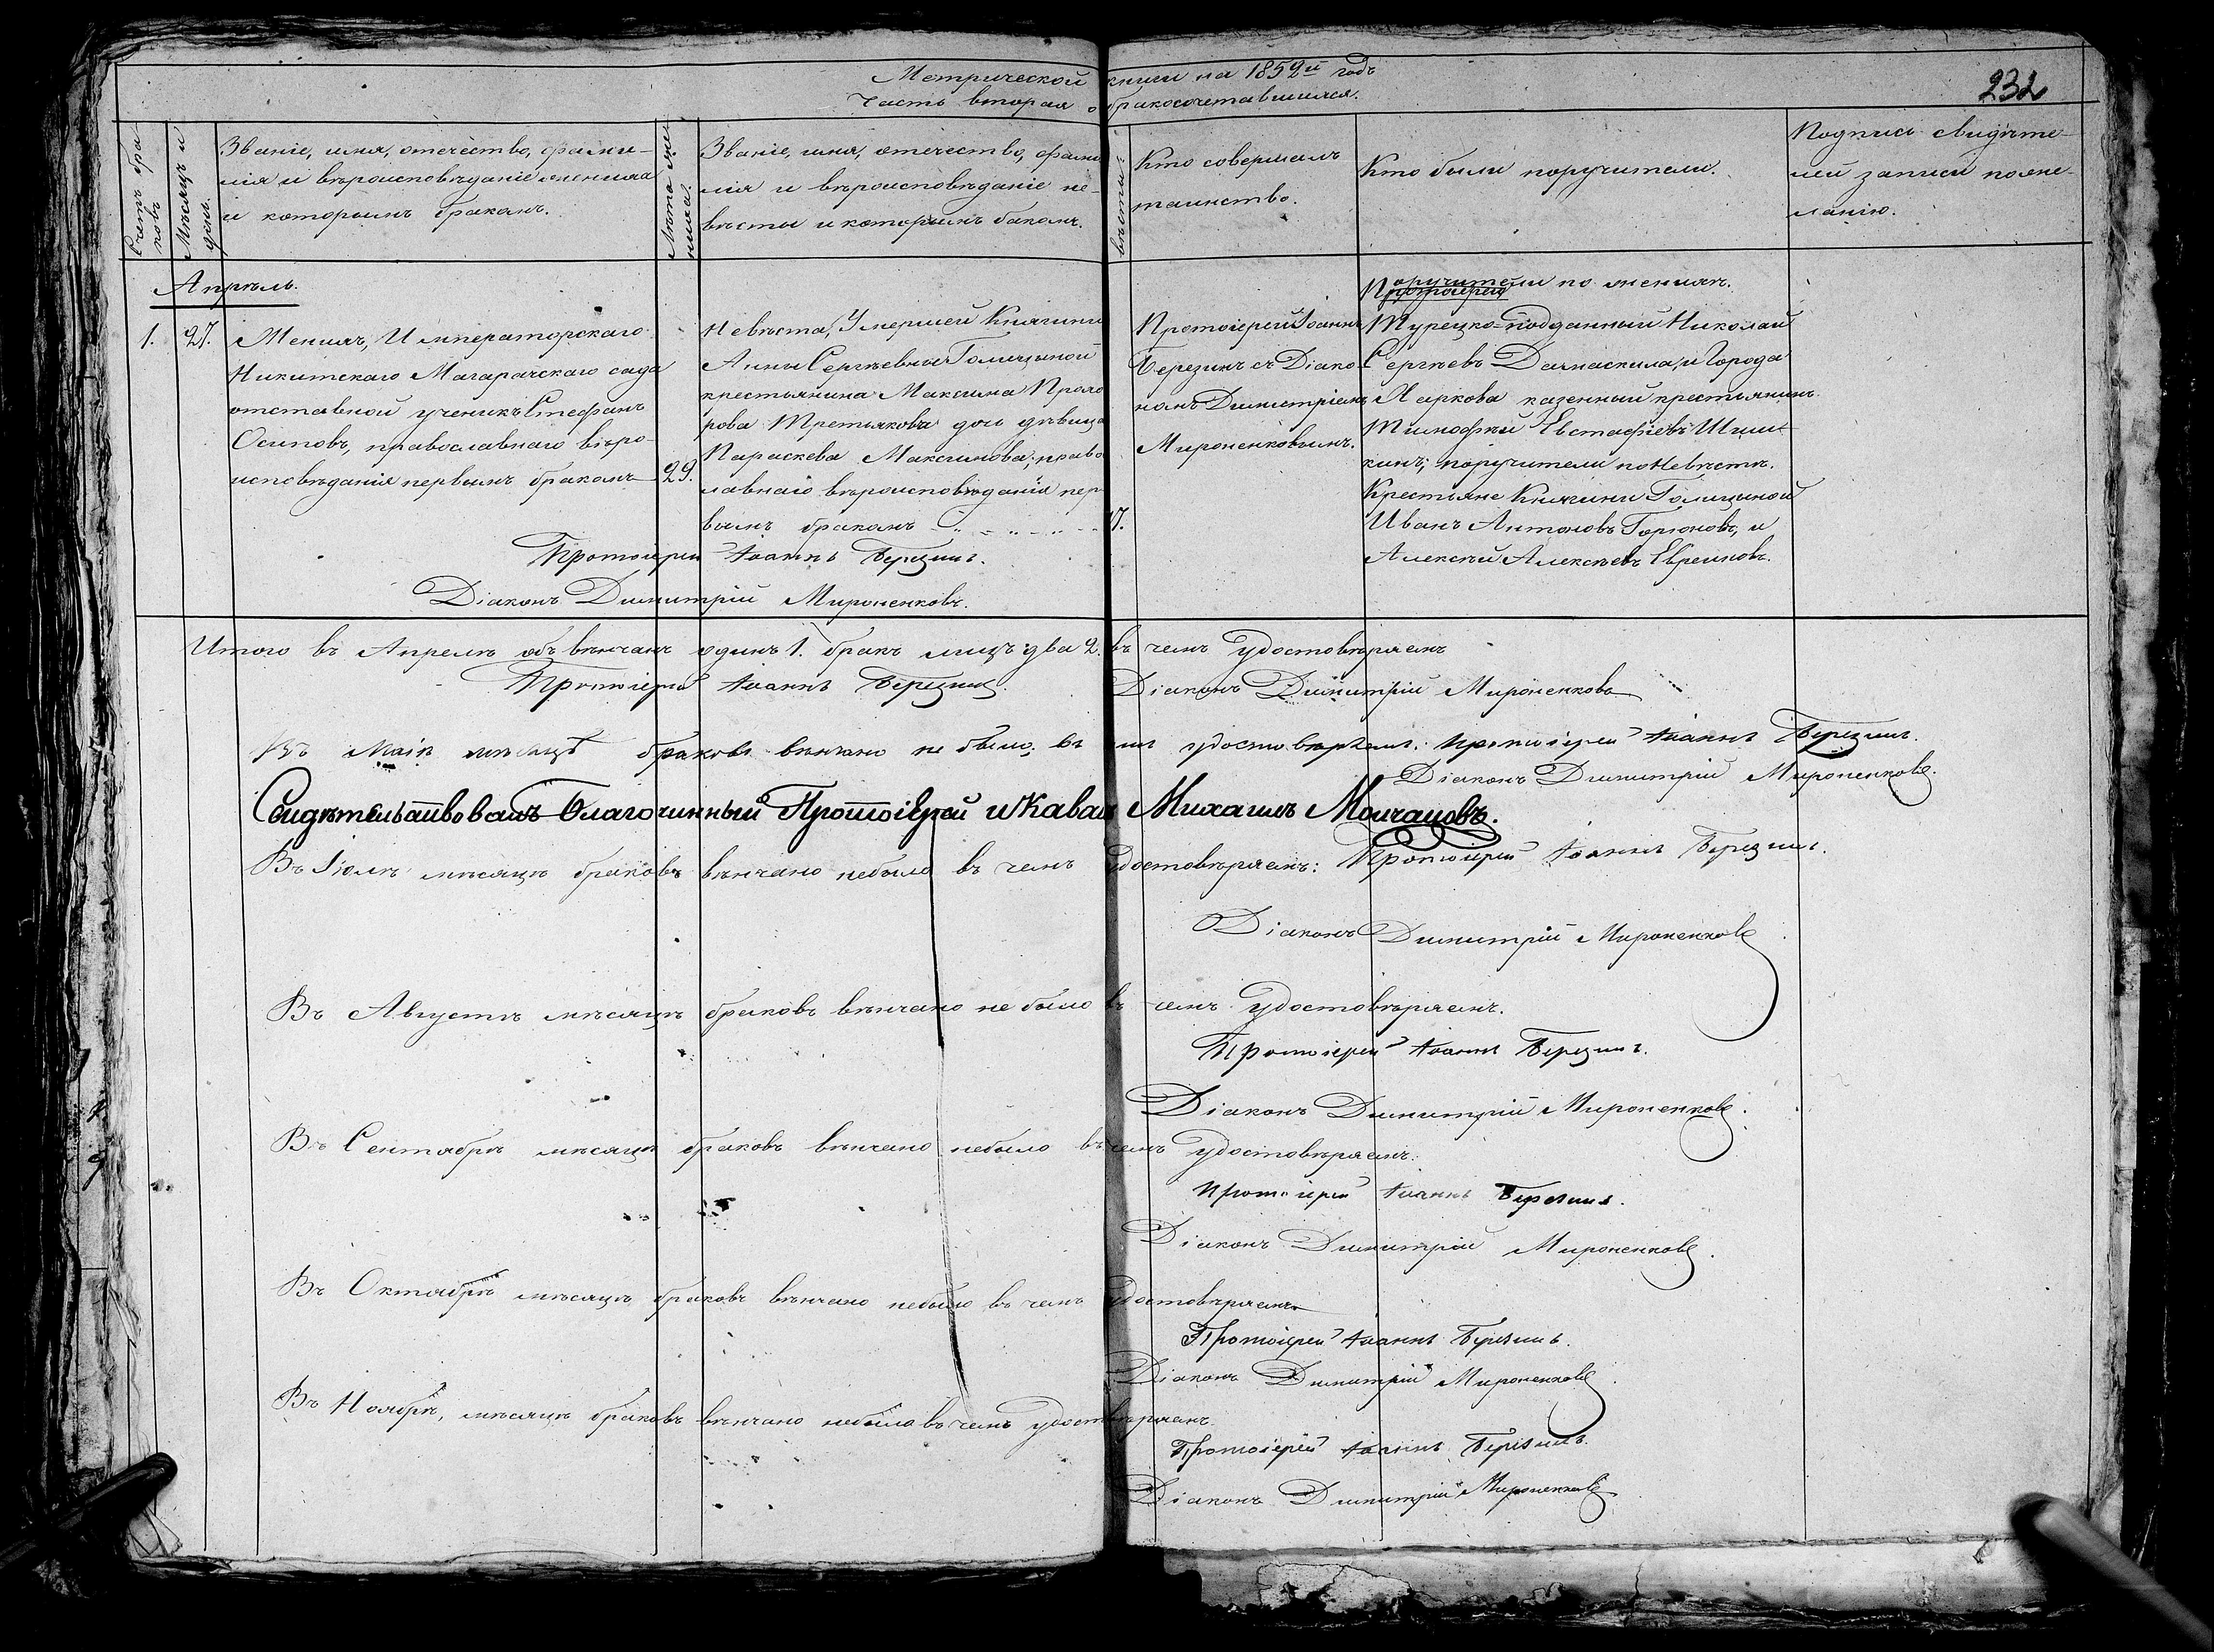 Метрической книги на 1852й годъ
232
Часть вторая о бракосочетавшихся.
Счетъ бра-
ковъ
Мѣсяцъ и
день.
Званіе, имя, отечество, фами-
лія и вѣроисповѣданіе жениха
и которымъ бракомъ.
Лѣта же-
ниха.
Званіе, имя, отечество, фами
лія и вѣроисповѣданіе не-
вѣсты и которымъ бакомъ.
вѣсты
Кто совершалъ
таинство.
Кто были поручители.
Подпись свидѣте-
лей записи поже-
ланію.
Апрѣль.
1.
27.
Женихъ, Императорскаго
Никитскаго Магарачскаго сада
отставной ученикъ Стефанъ
Осиповъ, православнаго вѣро-
исповѣданія первымъ бракомъ
29.
Невѣста, Умершей Княгини
Анны Сергѣевны Голицыной
крестьянина Максима Прохо
рова Третьякова дочь дѣвица
Параскева Максимова, право
лавнаго вѣроисповѣданія пер
вымъ бракомъ
17.
Протоіерей Іоаннъ
Березинъ съ Діако-
номъ Димитріемъ
Мироненковымъ.
Поручители по женихѣ.
Турецко-подданный Николай
Сергѣевъ и Города
Харкова казенный крестьянинъ
Тимофей Евстафіевъ Шиш
кинъ; поручители по Невѣстѣ.
Крестьяне Княгини Голицыной
Иванъ Антоновъ Горюновъ, и
Алексѣй Алексѣевъ Евреиновъ.
Протоіерей Іоаннъ Березинъ.
Діаконъ Димитрій Мироненковъ.
Итого въ Апрелѣ обвѣнчанъ одинъ 1. бракъ лицъ два 2. въ чемъ удостовѣряемъ
Протоіерей Іоаннъ Березинъ. Діаконъ Димитрій Мироненковъ
Въ Маіѣ мѣсяцѣ браковъ вѣнчано не было, въ чемъ удостовѣряемъ. Протоіерей Іоаннъ Березинъ.
Діаконъ Димитрій Мироненковъ.
Свидѣтельствовалъ Благочинный Протоіерей и Кавал Михаилъ Молчановъ.
Въ Іюлѣ мѣсяцѣ браковъ вѣнчано небыло въ чемъ удостовѣряемъ: Протоіерей Іоаннъ Березинъ.
Діаконъ Димитрій Мироненковъ
Въ Августѣ мѣсяцѣ браковъ вѣнчано не было въ чемъ удостовѣряемъ.
Протоіерей Іоаннъ Березинъ.
Діаконъ Димитрій Мироненковъ.
Въ Сентябрѣ мѣсяцѣ браковъ вѣнчано небыло въ чемъ удостовѣряемъ.
Протоіерей Іоаннъ Березинъ.
Діаконъ Димитрій Мироненковъ.
Въ Октябрѣ мѣсяцѣ браковъ вѣнчано небыло въ чемъ удостовѣряемъ
Протоіерей Іоаннъ Березинъ.
Діаконъ Димитрій Мироненковъ.
Въ Ноябрѣ, мѣсяцѣ браковъ вѣнчано небыло въ чемъ удостовѣряемъ.
Протоіерей Іоаннъ Березинъ.
Діаконъ Димитрій Мироненковъ